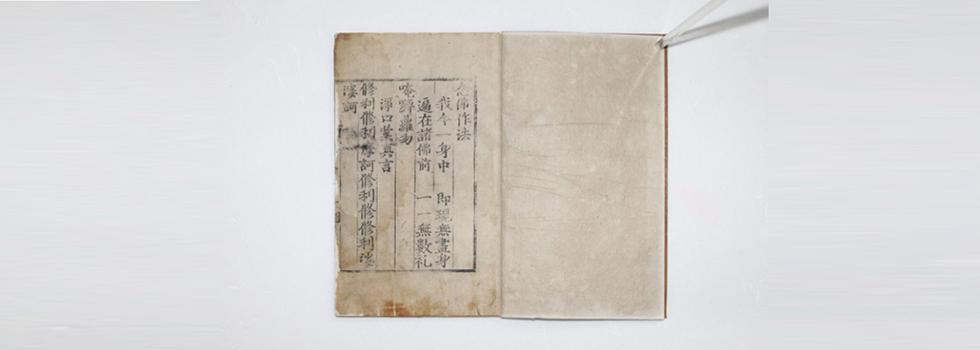 念佛作法
我今一身中 即現無盡身
遍在諸佛前 一一無數礼
唵 囉 勿
淨口業真言
修利修利摩訶修利修修利娑
婆訶